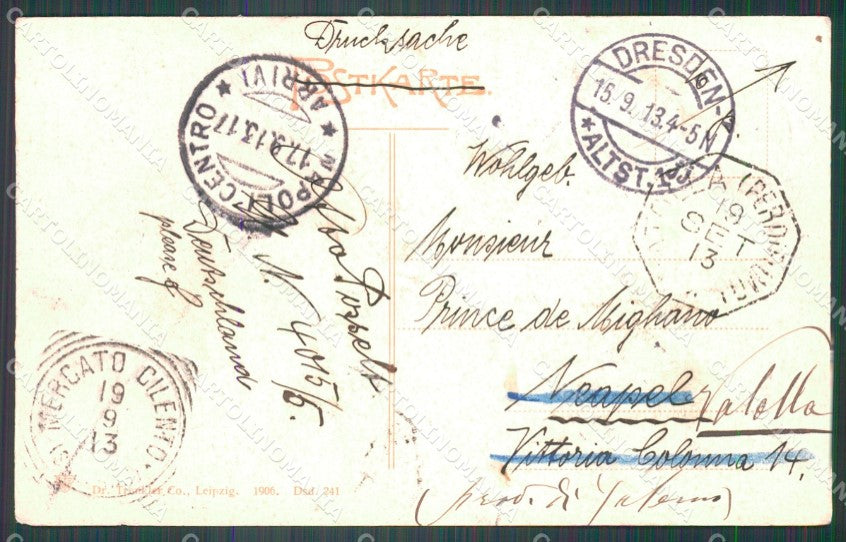 Drucksache
POSTKARTE.
DRESDEN
15.9.13.4-5N
*ALTST.
NAPOLI-CENTRO
17.9.13.17
ARRIVI
Wohlgeb.
Monsieur
Prince de Mighano
Neapel
Vittoria Colonna 14.
19
SET
13
Otto Posselt
N. 4015/5.
Deutschland
please f
MERCATO CILENTO
19
9
13
Dr. Trenkler Co., Leipzig. 1906. Dsd. 241
CARTOLINOMANIA